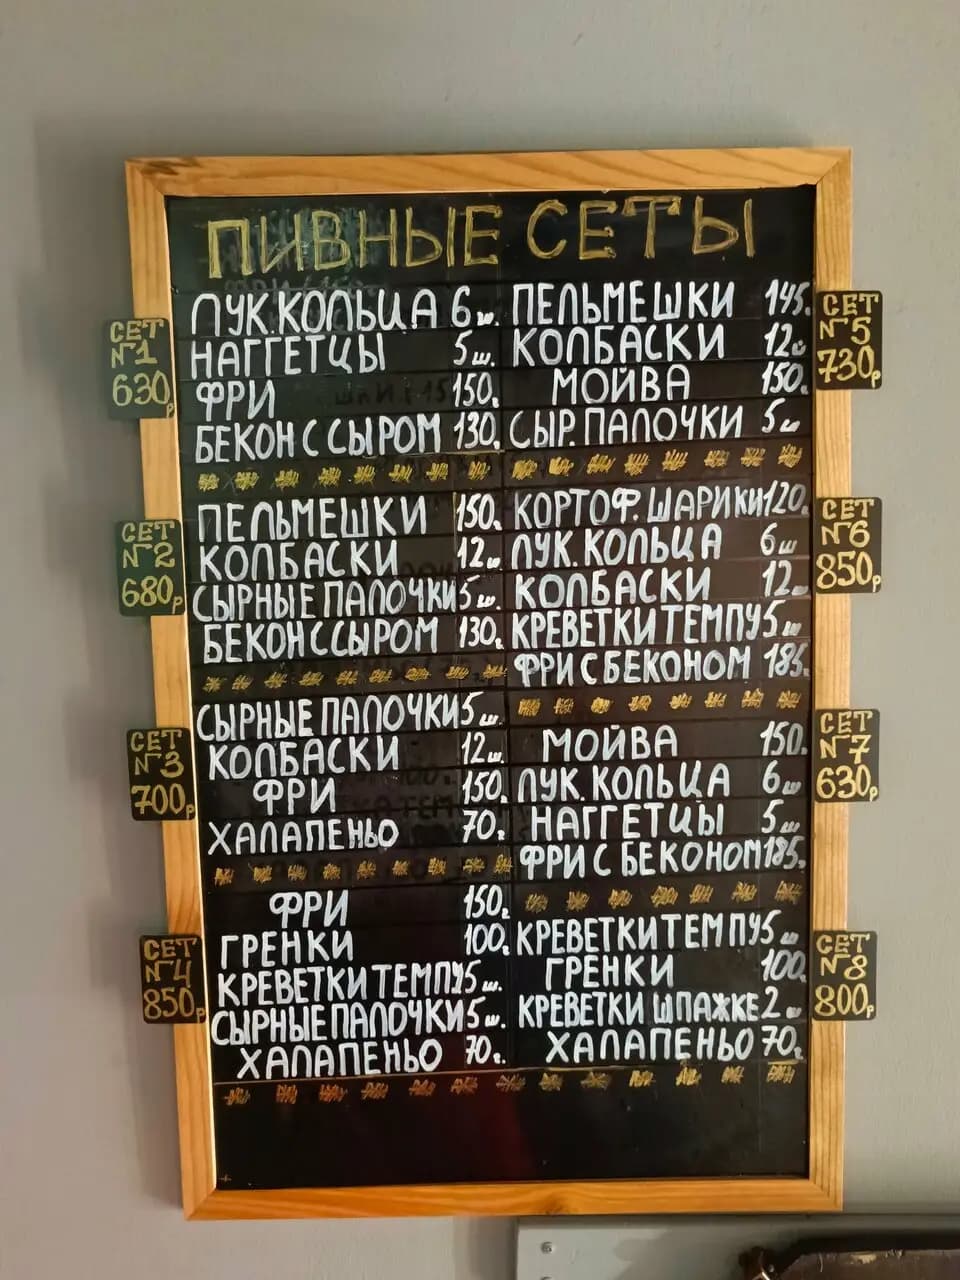 ПИВНЫЕ СЕТЫ
СЕТ
№1
630р
ЛУК.КОЛЬЦА 6ш.
НАГГЕТЦЫ 5ш.
ФРИ 150г
БЕКОН С СЫРОМ 130г
СЕТ
№2
680р
ПЕЛЬМЕШКИ 150г
КОЛБАСКИ 12ш.
СЫРНЫЕ ПАЛОЧКИ 5ш.
БЕКОН С СЫРОМ 130г
СЕТ
№3
700р
СЫРНЫЕ ПАЛОЧКИ 5ш.
КОЛБАСКИ 12ш.
ФРИ 150г
ХАЛАПЕНЬО 70г
СЕТ
№4
850р
ФРИ 150г
ГРЕНКИ 100г
КРЕВЕТКИ ТЕМПУ 5ш.
СЫРНЫЕ ПАЛОЧКИ 5ш.
ХАЛАПЕНЬО 70г.
СЕТ
№5
730р
ПЕЛЬМЕШКИ 145г
КОЛБАСКИ 12ш
МОЙВА 150г
СЫР.ПАЛОЧКИ 5ш
СЕТ
№6
850р
КОРТОФ.ШАРИКИ 120г
ЛУК.КОЛЬЦА 6ш
КОЛБАСКИ 12ш
КРЕВЕТКИ ТЕМПУ 5ш
ФРИ С БЕКОНОМ 185г
СЕТ
№7
630р
МОЙВА 150г
ЛУК.КОЛЬЦА 6ш
НАГГЕТЦЫ 5ш
ФРИ С БЕКОНОМ 185г
СЕТ
№8
800р
КРЕВЕТКИ ТЕМПУ 5ш
ГРЕНКИ 100г
КРЕВЕТКИ ШПАЖКЕ 2ш
ХАЛАПЕНЬО 70г